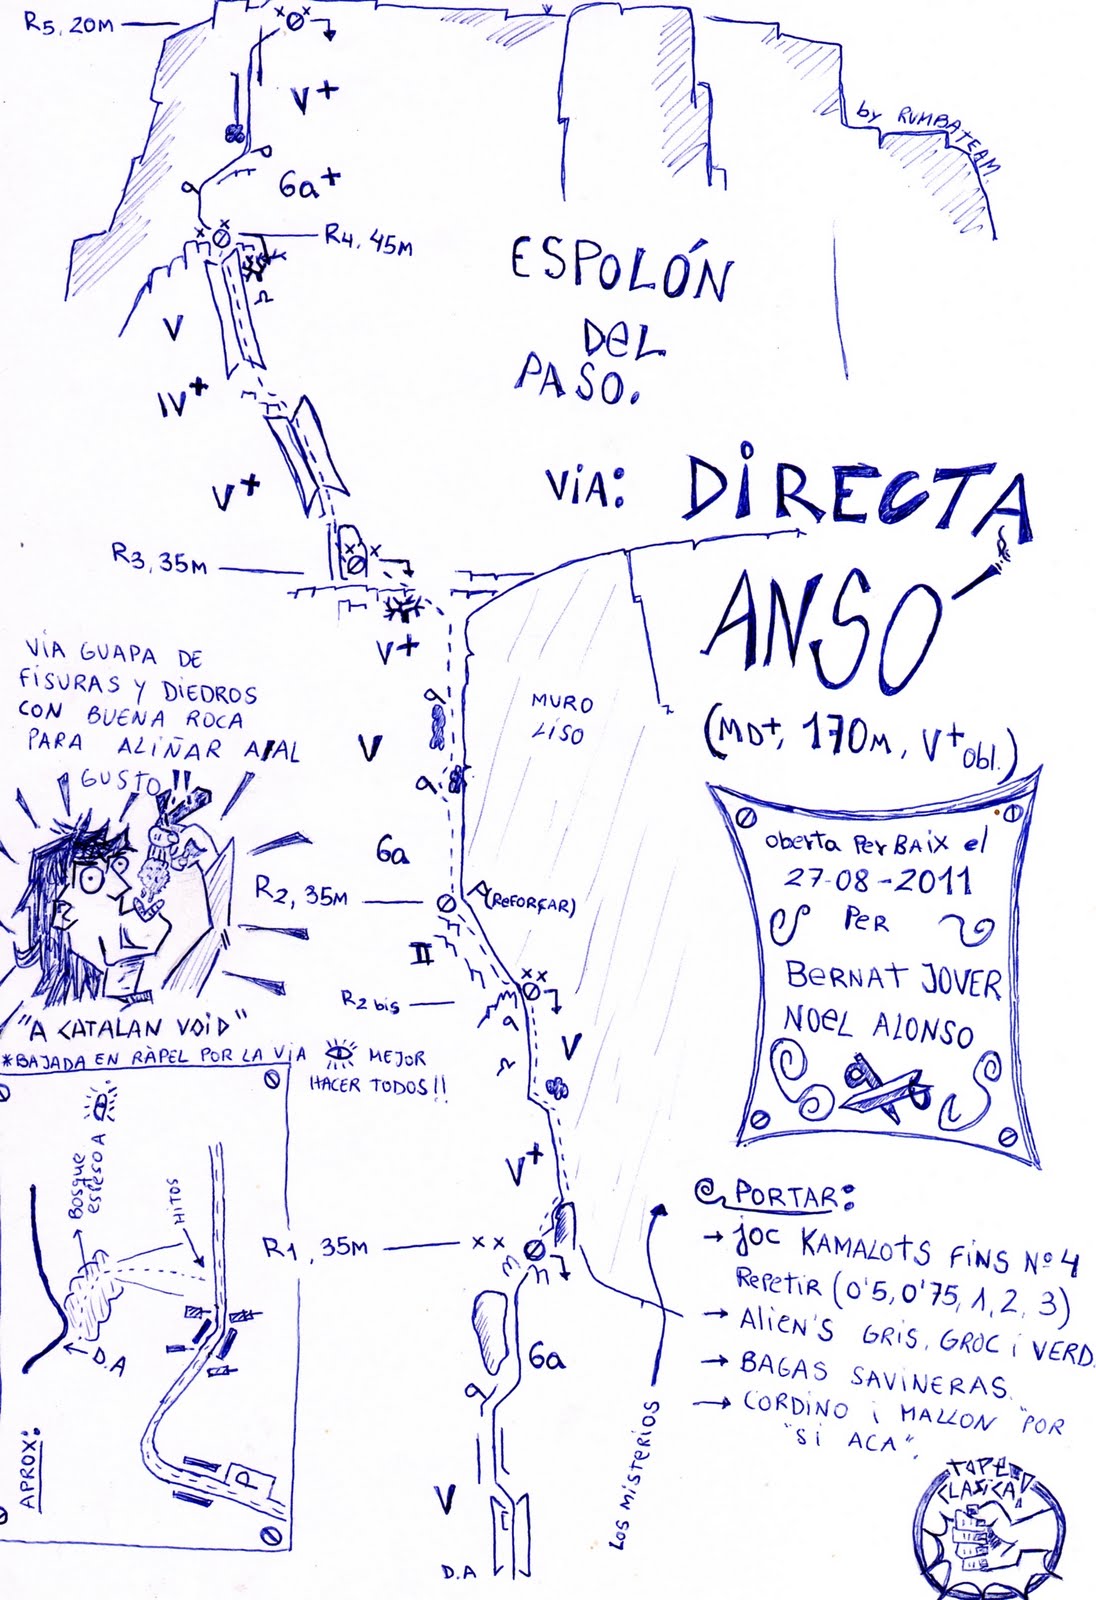 R5, 20M
V+
by RUMBATEAM.
6a+
R4, 45M
ESPOLÓN
DEL
PASO.
V
IV+
V+
VIA: DIRECTA
ANSO
(MD+, 170M, V+ obl.)
R3, 35M
V+
VIA GUAPA DE
FISURAS Y DIEDROS
CON BUENA ROCA
PARA ALIÑAR A AL
GUSTO
MURO
LISO
V
6a
R2, 35M
(REFORÇAR)
II
R2 bis
oberta Per BAIX el
27-08-2011
Per
BERNAT JOVER
NOEL ALONSO
"A CATALAN VOID"
*BAJADA EN RÀPEL POR LA VIA
MEJOR
HACER TODOS!!
V
V+
R1, 35M
6a
V
D.A
LOS MISTERIOS
Bosque
espeso A
HITOS
D.A
P
APROX:
PORTAR:
→ JOC KAMALOTS FINS Nº4
Repetir (0'5, 0'75, 1, 2, 3)
→ ALIEN'S GRIS, GROC i VERD.
→ BAGAS SAVINERAS.
→ CORDINO i MALLON "POR
"SI ACA".
TOPE
CLASICA!